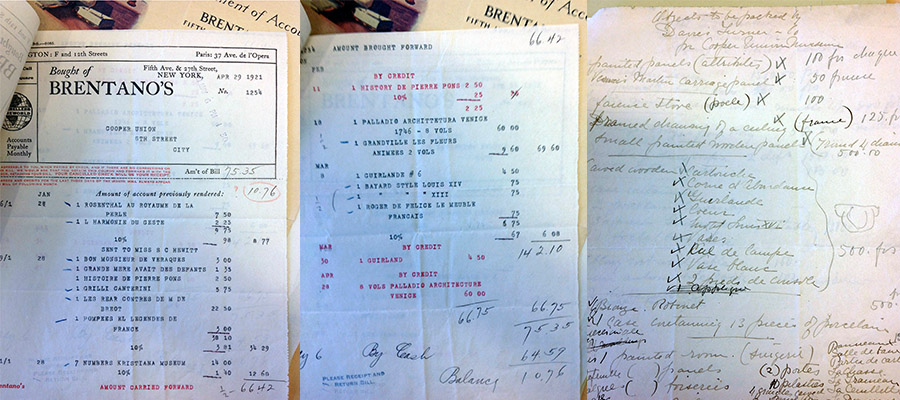 ment of Acco
BRENTANO'S
GTON: F and 12th Streets
Paris: 37 Ave. de l'Opera
Bought of
BRENTANO'S
Fifth Ave. & 27th Street,
NEW YORK, APR 29 1921
No. 1254
COOPER UNION
8TH STREET
CITY
Accounts
Payable
Monthly
Am't of Bill 75.35
Amount of account previously rendered: 10.76
JAN
28 1 ROSENTHAL AU ROYAUME DE LA
PERLE 7 50
1 L HARMONIE DU GESTE 2 25
9 75
10% 98 8 77
SENT TO MISS S C HEWITT
28 1 BON MONSIEUR DE VERAQUES 3 00
1 GRANDE MERE AVAIT DES DEFANTS 1 35
1 HISTOIRE DE PIERRE PONS 2 50
1 GRILLI CANTERINI 3 75
1 LES REAR CONTRES DE M DE
BREOT 22 50
1 POMPEES ML LEGENDES DE
FRANCE 5 00
38 10
10% 3 81 34 29
28 7 NUMBERS KRISTIANA MUSEUM 14 00
10% 1 40 12 60
AMOUNT CARRIED FORWARD 66 42
ment of Acco
BRENTANO'S
FIFTH
66.42
AMOUNT BROUGHT FORWARD
FEB
BY CREDIT
11 1 HISTORY DE PIERRE PONS 2 50
10% 25
2 25
18 1 PALLADIO ARCHITTETURA VENICE
1746 - 8 VOLS 60 00
1 GRANDVILLE LES FLEURS
ANIMEES 2 VOLS 9 60 69 60
MAR
8 1 GUIRLANDE #6 4 50
1 BAYARD STYLE LOUIS XIV 75
1 " " " XIII 75
1 ROGER DE FELICE LE MEUBLE
FRANCAIS 75
6 75
10% 67 6 08
142.10
MAR BY CREDIT
30 1 GUIRLAND 4 50
APR BY CREDIT
28 8 VOLS PALLADIO ARCHITECTURE
VENICE 60 00
66.75 66.75
75.35
By Cash 64.59
PLEASE RECEIPT AND
RETURN BILL
Balance 10.76
Objects to be packed by
Turner & Co
for Cooper Union Museum
painted panels (attributes) X 100 frs cheque
Vernis Martin Carriage panel X 50
faience stove (poele) X 100
Framed drawing of a ceiling (frame) 125 frs
Small painted wooden panel X
500.00
carved wooden X Cartouche
X Corne d'abondance
X Guirlande
X Coeur
X Vases
X Cul de lampe
X Vase blanc
500. frs
500.
Robinet
1 Case containing 13 pieces of porcelain
1 painted room (singerie)
( ) panels (2) portes
( ) boiseries